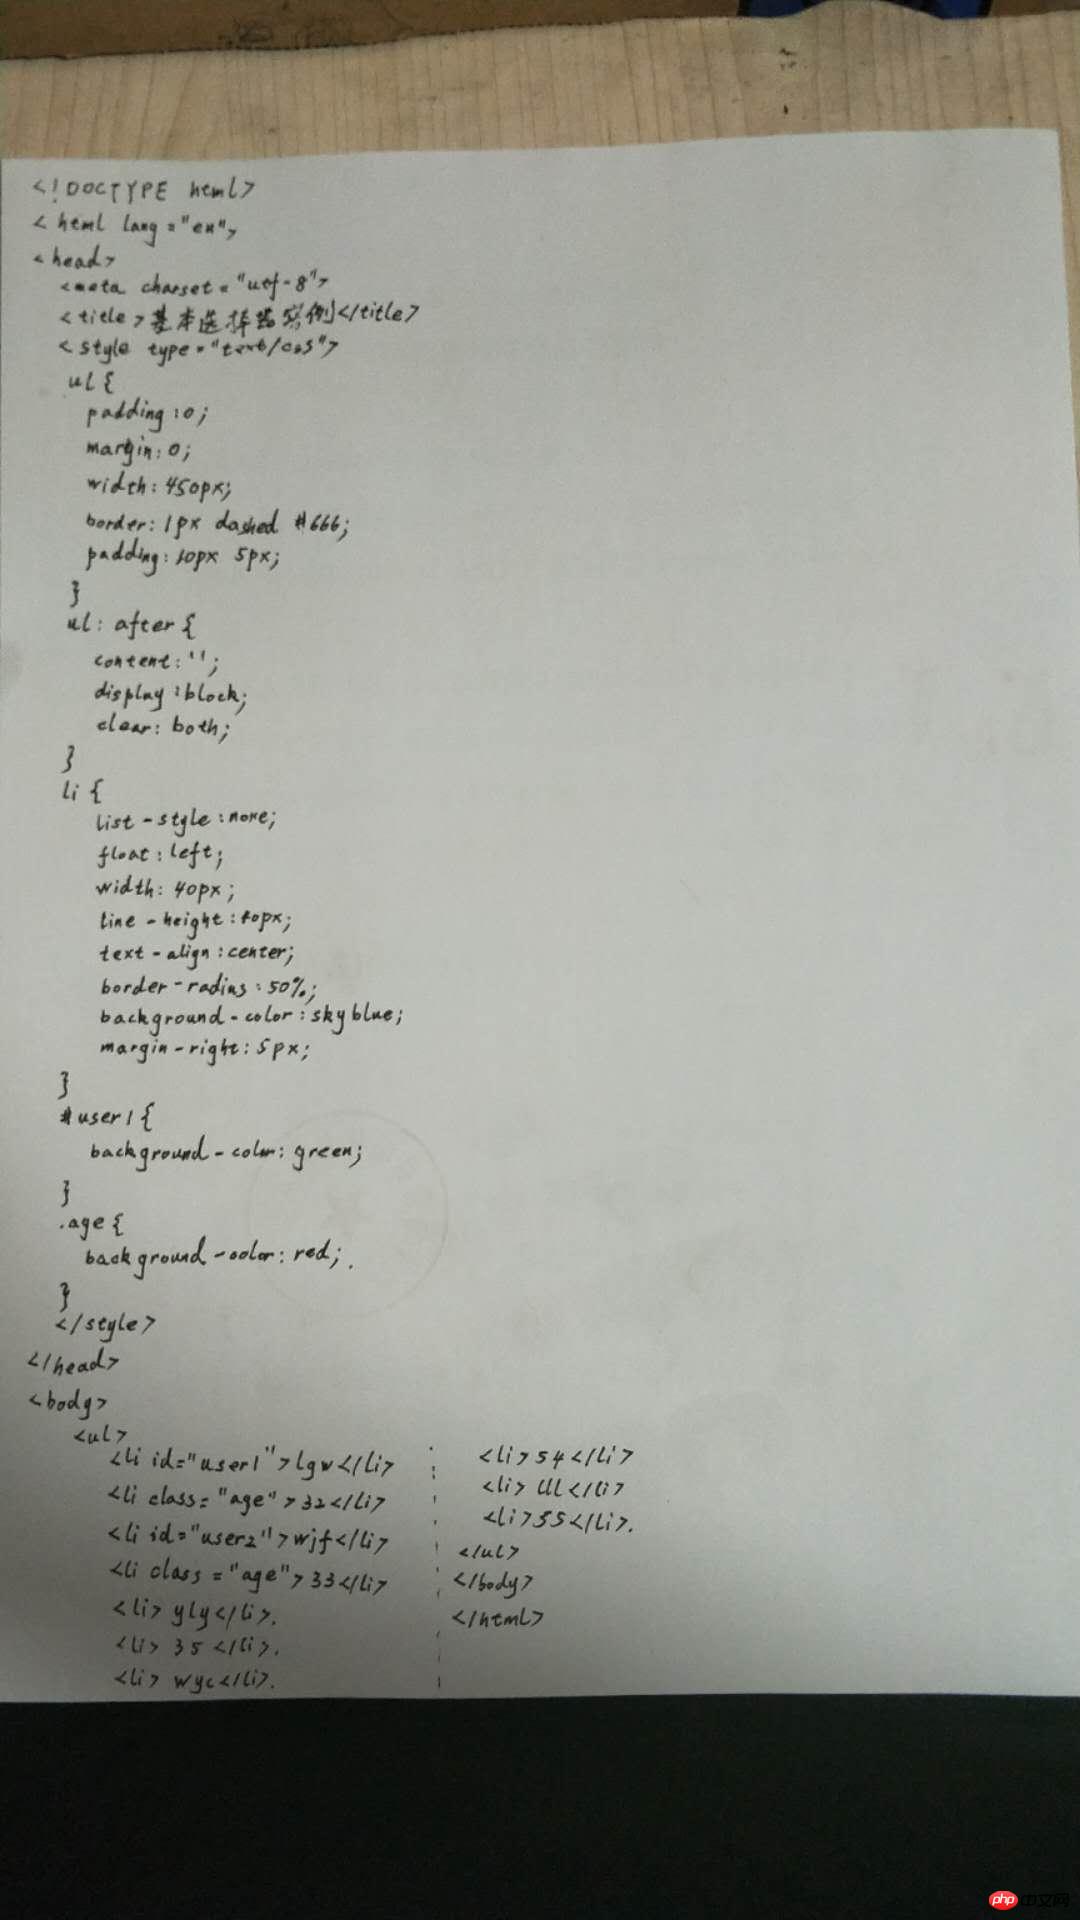 <!DOCTYPE html>
<html lang="en">
<head>
<meta charset="utf-8">
<title>基本选择器实例</title>
<style type="text/css">
ul{
padding:0;
margin:0;
width:450px;
border:1px dashed #666;
padding:10px 5px;
}
ul:after{
content:'';
display:block;
clear:both;
}
li{
list-style:none;
float:left;
width:40px;
line-height:40px;
text-align:center;
border-radius:50%;
background-color:skyblue;
margin-right:5px;
}
#user1{
background-color:green;
}
.age{
background-color:red;.
}
</style>
</head>
<body>
<ul>
<li id="user1">lgw</li>
<li class="age">32</li>
<li id="user2">wjf</li>
<li class="age">33</li>
<li>yly</li>.
<li>35</li>.
<li>wyc</li>.
<li>54</li>
<li></li>
<li>55</li>.
</ul>
</body>
</html>
php中文网